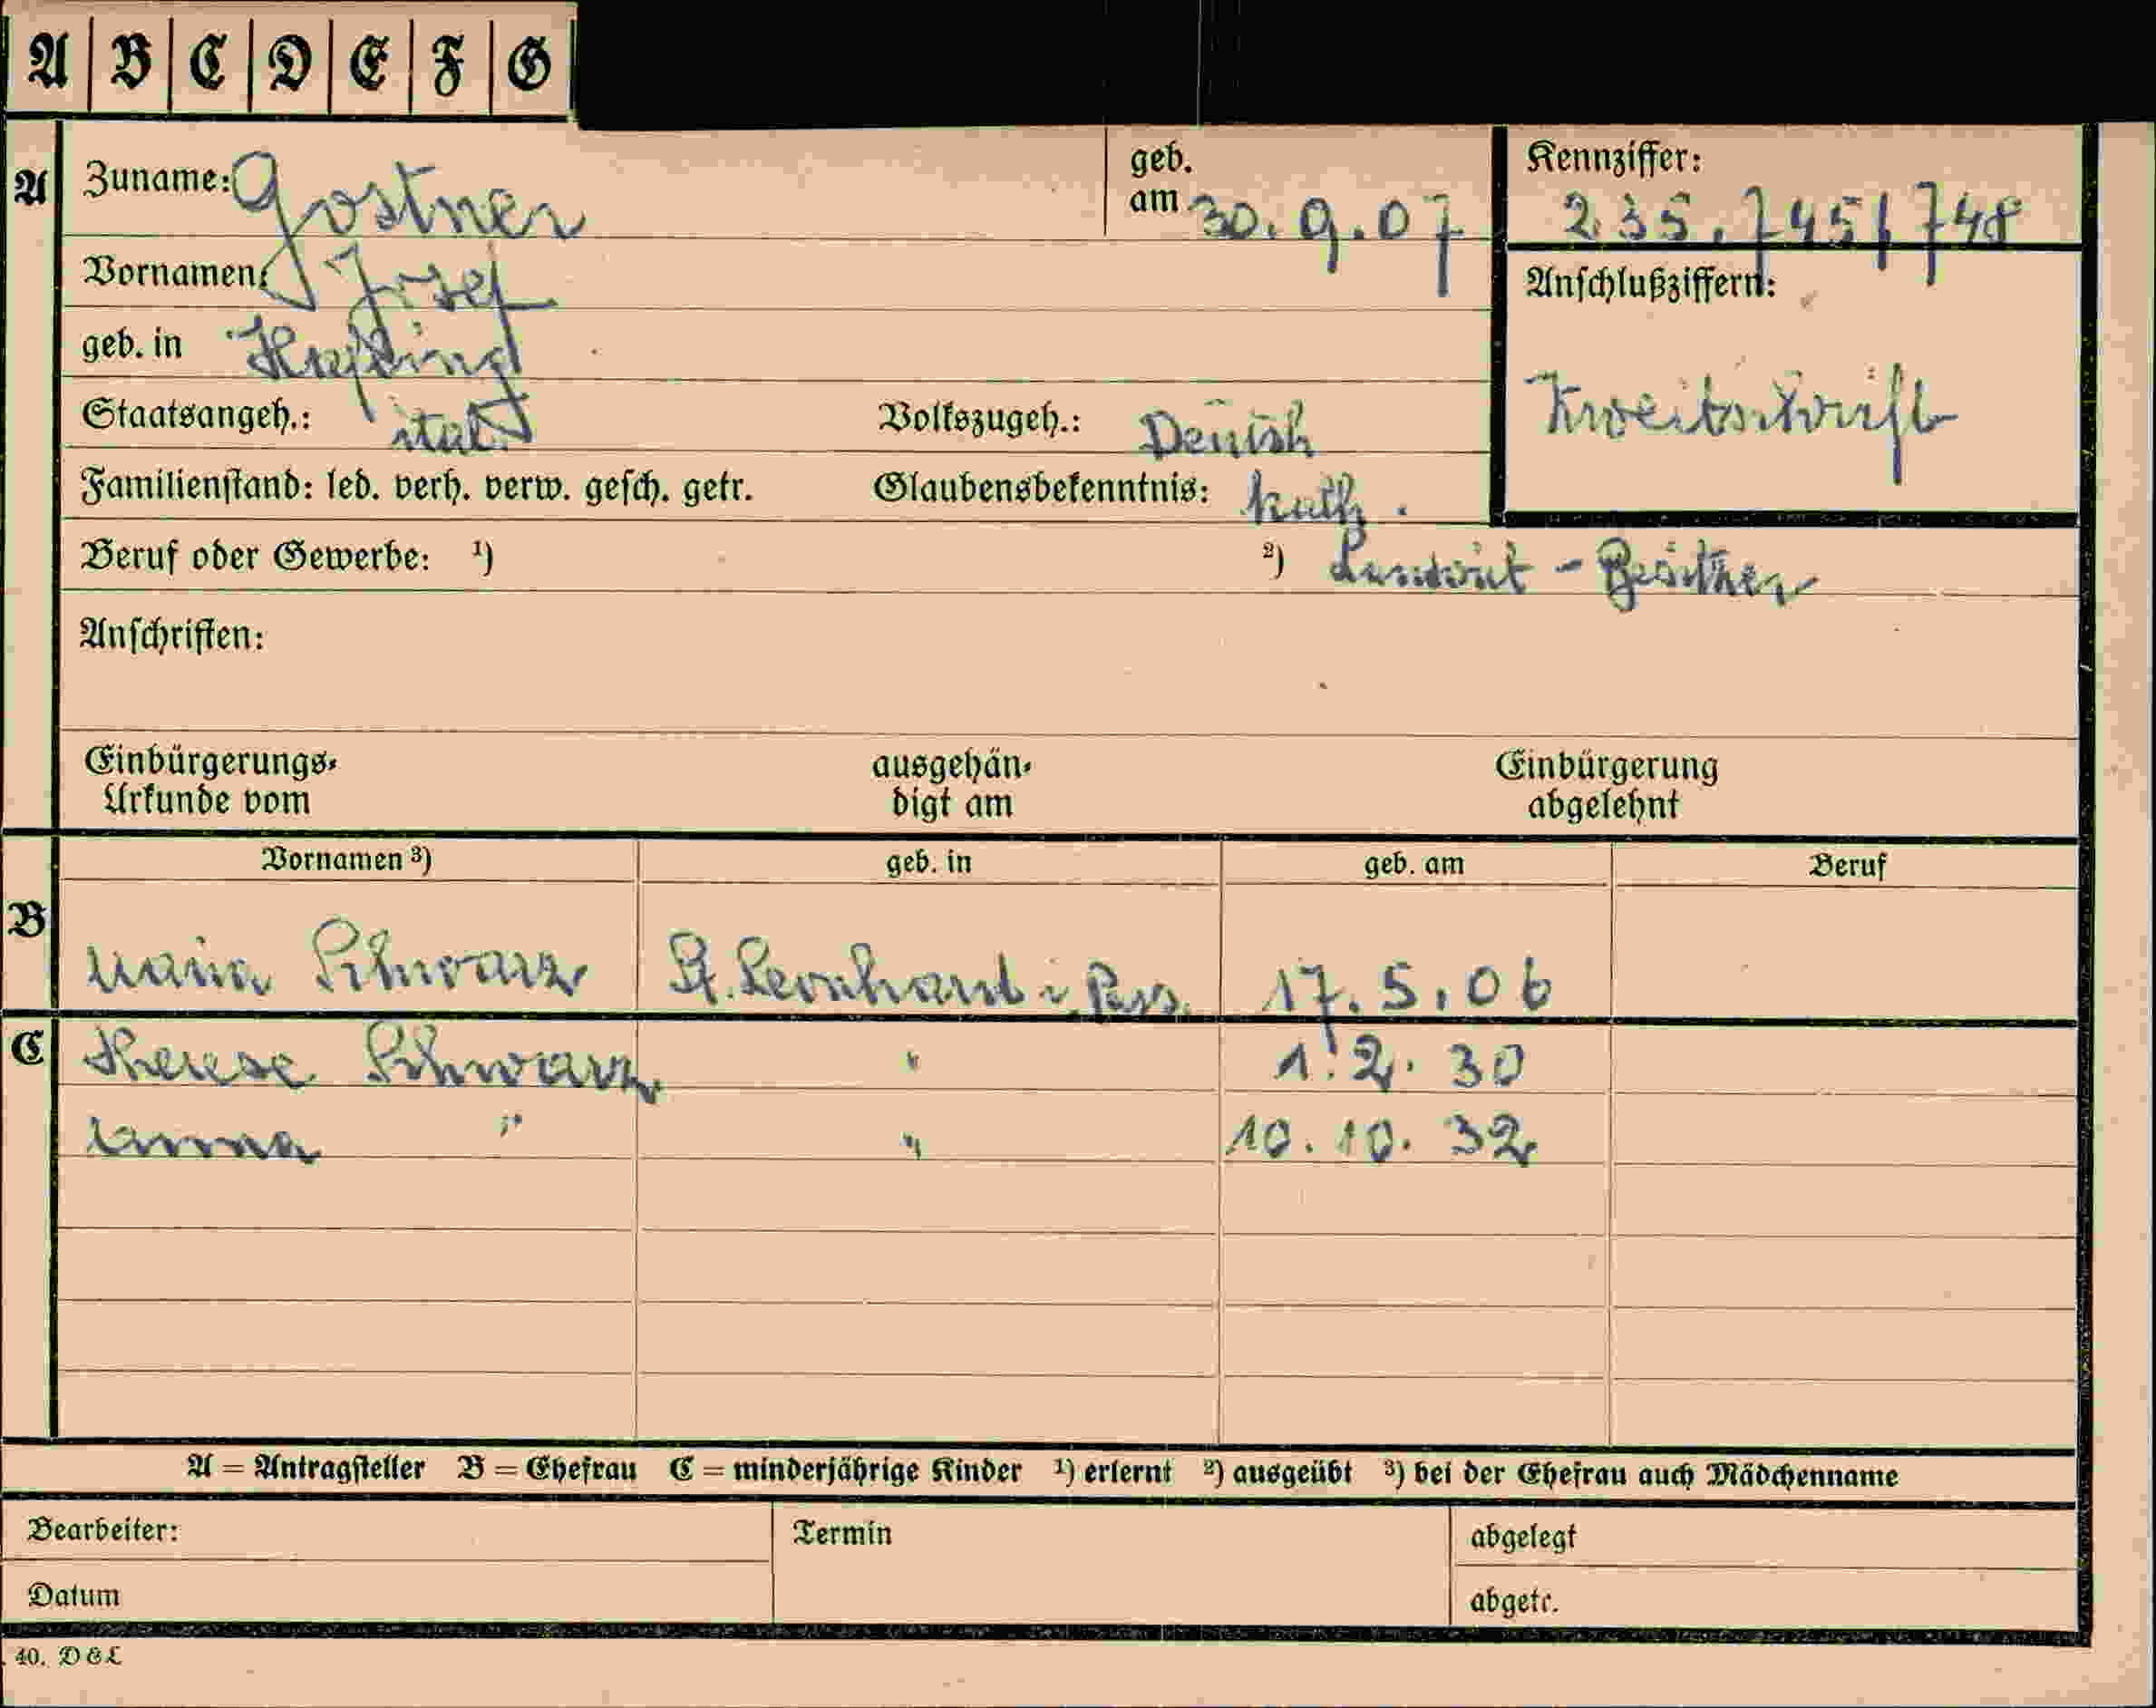 A B C D E F G
A Zuname: Gostner geb. am 30.9.07 Kennziffer: 235.745/748
Vornamen: Josef Anschlußziffern:
geb. in Hafling
Staatsangeh.: ital Volkszugeh.: Deutsch Zweitschrift
Familienstand: led. verh. verw. gesch. getr. Glaubensbekenntnis: kath.
Beruf oder Gewerbe: ¹) ²) Landwirt - Besitzer
Anschriften:
Einbürgerungs- ausgehän- Einbürgerung
Urkunde vom digt am abgelehnt
Vornamen ³) geb. in geb. am Beruf
B Maria Schwarz St. Leonhard i. Pass. 17.5.06
C Therese Schwarz " 1.2.30
Anna " " 10.10.32
A = Antragsteller B = Ehefrau C = minderjährige Kinder ¹) erlernt ²) ausgeübt ³) bei der Ehefrau auch Mädchenname
Bearbeiter: Termin abgelegt
Datum abgetr.
40. D & L